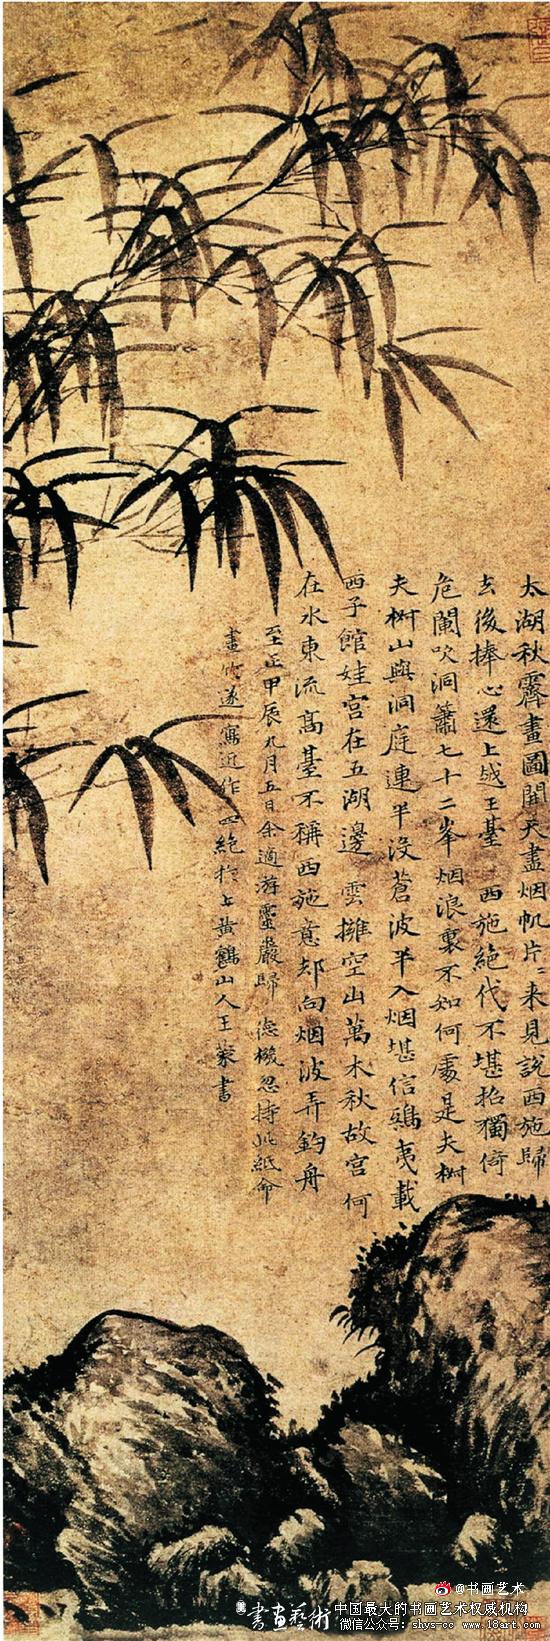 太湖秋霽畫圖開天盡烟帆片〻来見說西施歸
去後捧心還上越王䑓 西施絶代不堪招獨倚
危闌吹洞簫七十二峯烟浪裏不知何處是夫椒
夫椒山與洞庭連半没蒼波半入烟堪信鴟夷載
西子館娃宫在五湖邊 雲擁空山萬木秋故宫何
在水東流髙䑓不稱西施意却向烟波弄釣舟
至正甲辰九月五日余適游靈巖歸 德機忽持此紙命
畫竹遂寫近作四絶於上黄鶴山人王蒙書
@书画艺术
書画藝術
中国最大的书画艺术权威机构
微信公众号: shys-cc www.18art.com